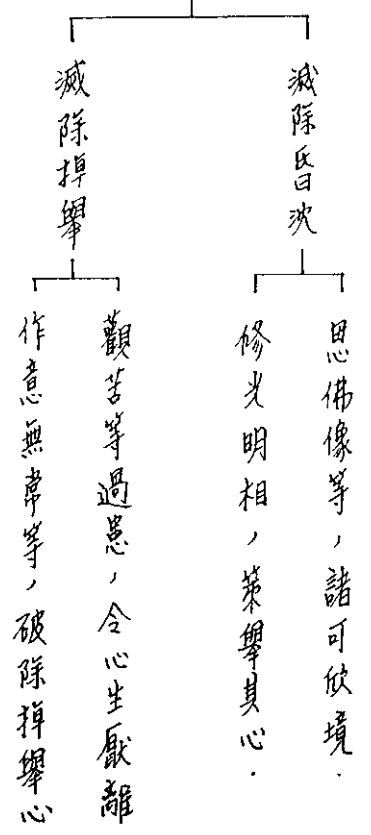 滅除昏沈
思佛像等，諸可欣境．
修光明相，策舉其心．
滅除掉舉
觀苦等過患，令心生厭離
作意無常等，破除掉舉心